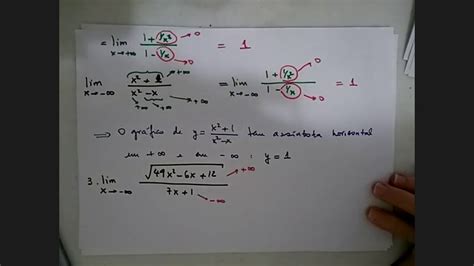 = lim x→+∞ (1 + 1/x² →0) / (1 − 1/x →0) = 1
lim x→−∞ (x² + 1 →+∞) / (x² − x →+∞) = lim x→−∞ (1 + 1/x² →0) / (1 − 1/x →0) = 1
⟹ O gráfico de y = (x² + 1)/(x² − x) tem assíntota horizontal
em +∞ e em −∞ : y = 1
3. lim x→−∞ √(49x² − 6x + 12) →+∞ / (7x + 1) →−∞